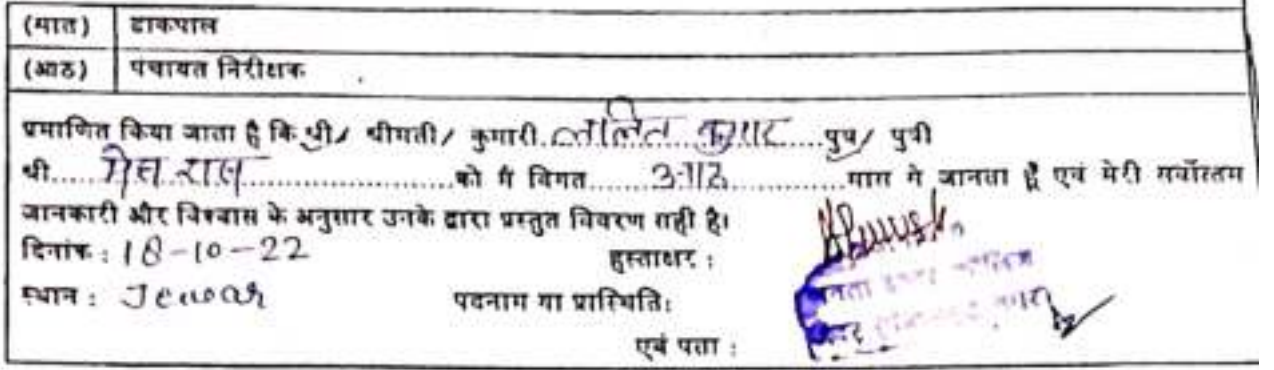 (सात) डाकपाल
(आठ) पंचायत निरीक्षक
प्रमाणित किया जाता है कि श्री/ श्रीमती/ कुमारी. ललित कुमार.....पुत्र/ पुत्री
श्री..................को मैं विगत..................मास से जानता हूँ एवं मेरी सर्वोत्तम
जानकारी और विश्वास के अनुसार उनके द्वारा प्रस्तुत विवरण सही है।
दिनांक : 18-10-22 हस्ताक्षर :
स्थान : Jewar पदनाम या प्रास्थिति:
एवं पता :